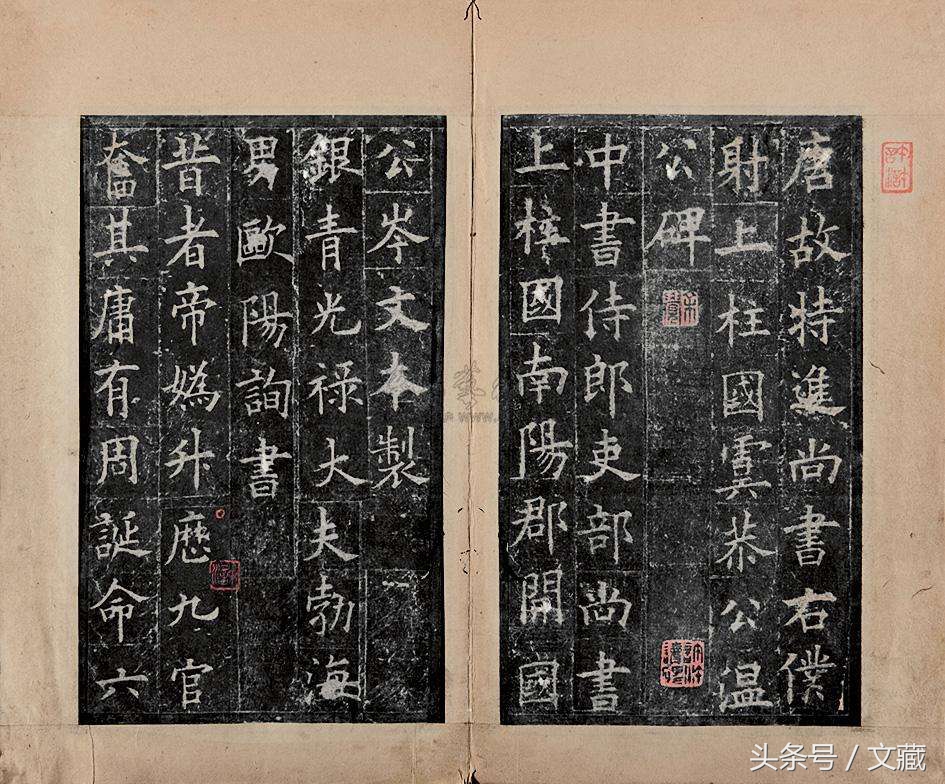 唐故特進尚書右僕
射上柱國虞恭公温
公碑
中書侍郎吏部尚書
上柱國南陽郡開國
公岑文本製
銀青光祿大夫勃海
男歐陽詢書
昔者帝媯升歷九官
奮其庸有周誕命六
头条号 / 文藏